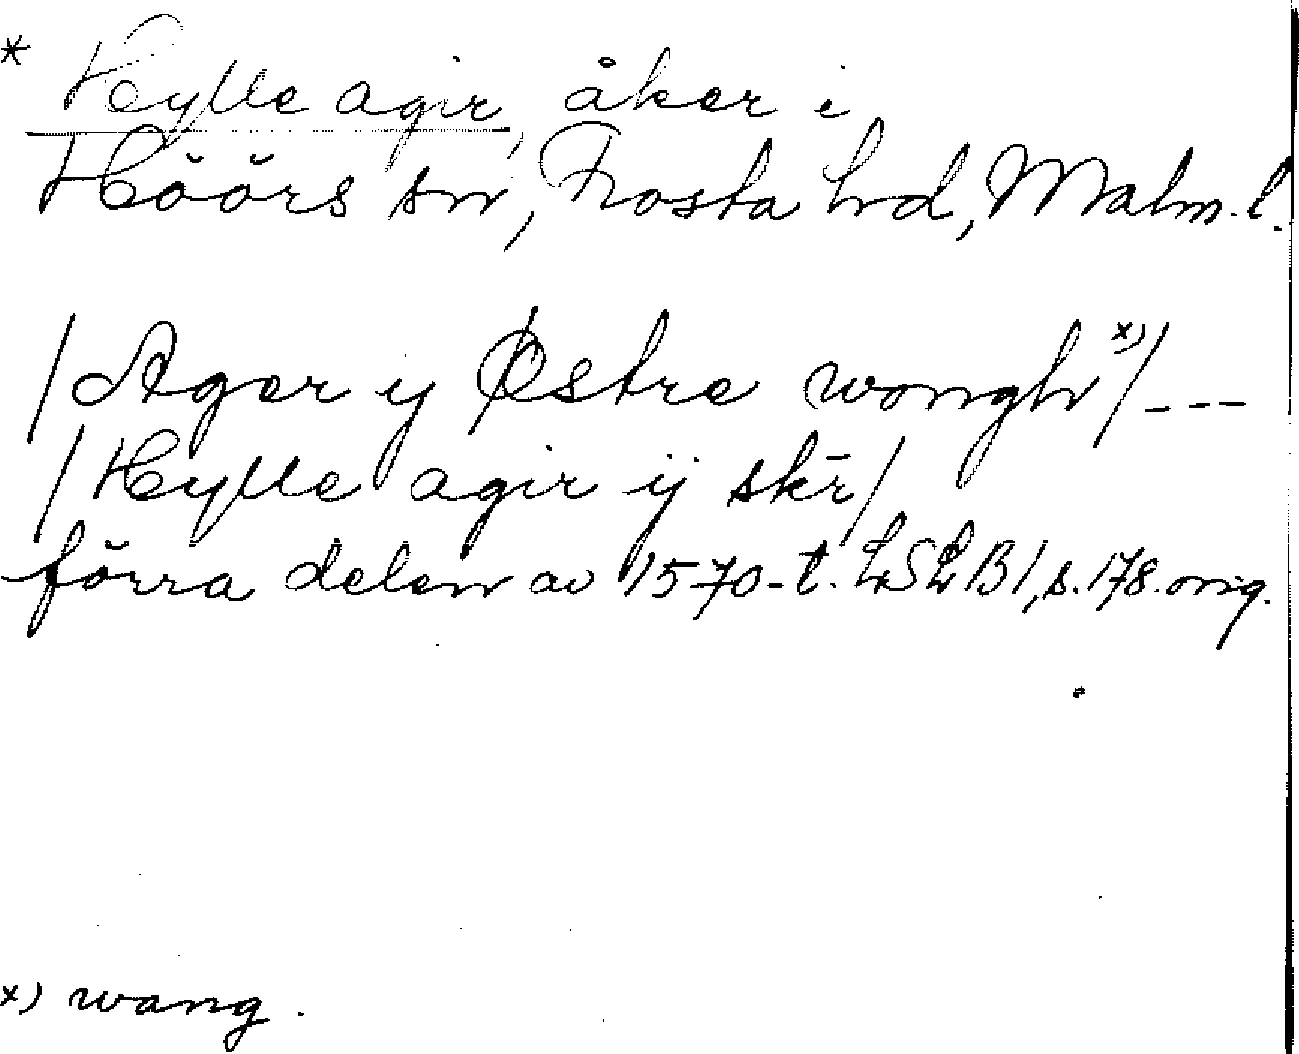 * Hylle agir, åker i
Höörs sn, Frosta hd, Malm. l.
/Ager ÿ Østre wongh x)/---
/Hylle agir ij skr̄/
förra delen av 1570-t. LSLB1, s. 178. orig.
x) wang.